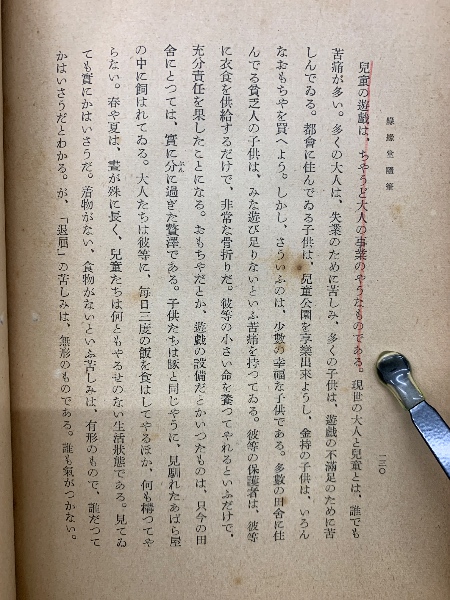 緣緣堂隨筆
一三〇
兒童の遊戲は、ちやうど大人の事業のやうなものである。現世の大人と兒童とは、誰でも
苦痛が多い。多くの大人は、失業のために苦しみ、多くの子供は、遊戲の不滿足のために苦
しんでゐる。都會に住んでゐる子供は、兒童公園を享樂出來ようし、金持の子供は、いろん
なおもちやを買へよう。しかし、さういふのは、少數の幸福な子供である。多數の田舍に住
んでる貧乏人の子供は、みな遊び足りないといふ苦痛を持つてゐる。彼等の保護者は、彼等
に衣食を供給するだけで、非常な骨折りだ。彼等の小さい命を養つてやれるといふだけで、
充分責任を果したことになる。おもちやだとか、遊戲の設備だとかいつたものは、只今の田
舍にとつては、實に分ぶんに過ぎた贅澤である。子供たちは豚と同じやうに、見馴れたあばら屋
の中に飼はれてゐる。大人たちは彼等に、每日三度の飯を食はしてやるほか、何も構つてや
らない。春や夏は、晝が殊に長く、兒童たちは何ともやるせのない生活狀態である。見てゐ
ても實にかはいさうだ。着物がない、食物がないといふ苦しみは、有形のもので、誰だつて
かはいさうだとわかる。が、「退屈」の苦しみは、無形のものである。誰も氣がつかない。